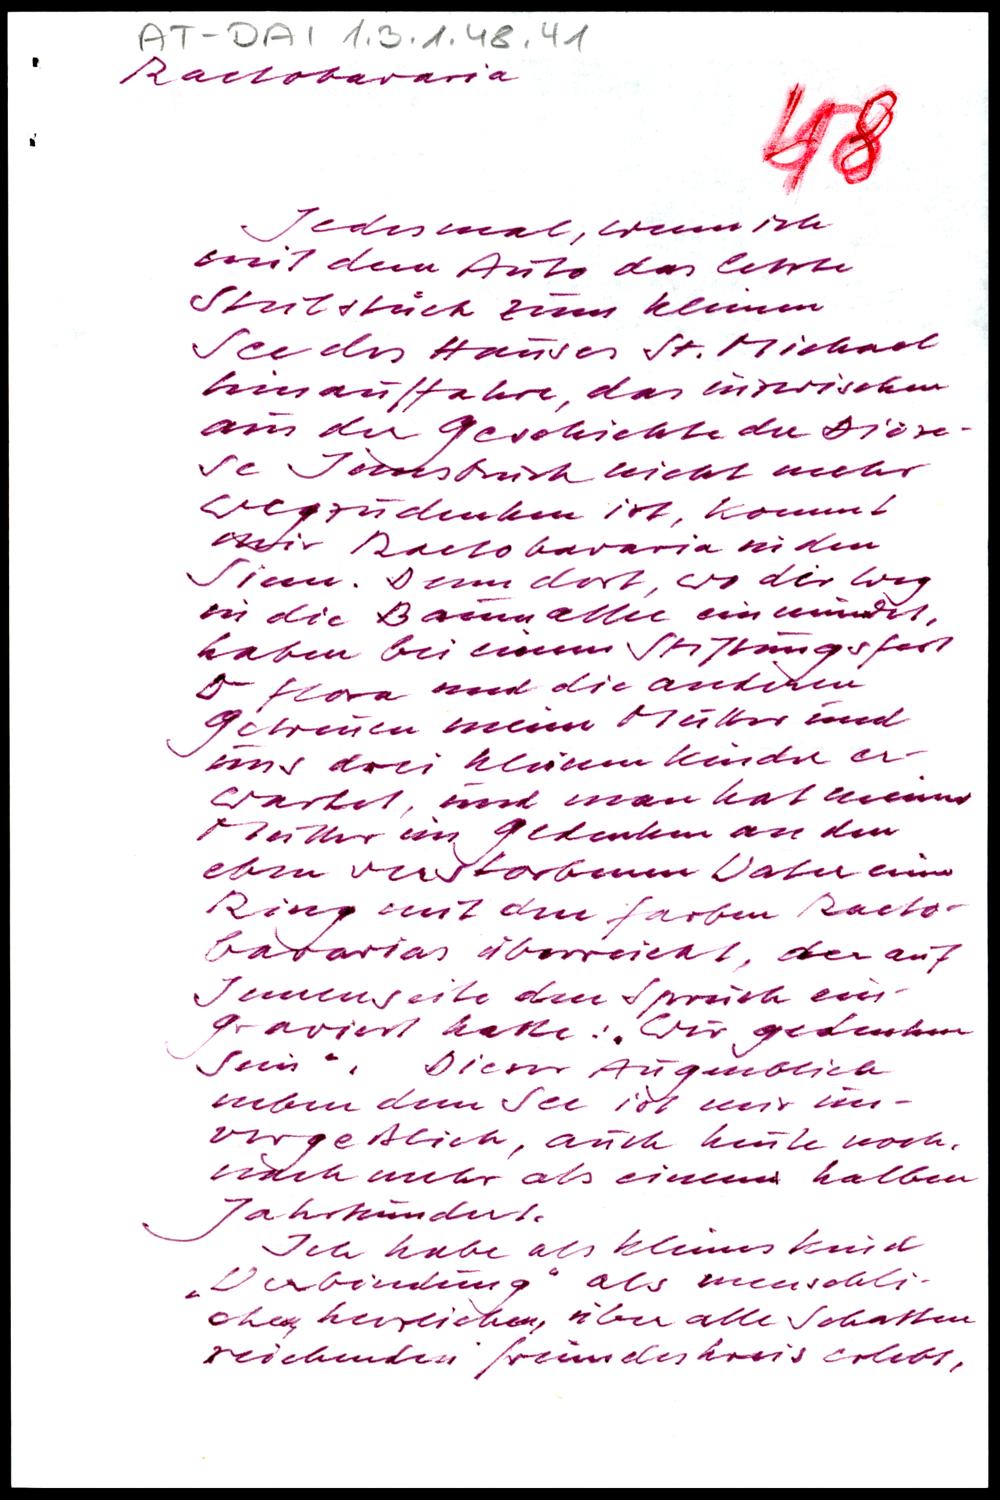 AT-DAI 1.3.1.48.41
Raetobavaria
48
Jedesmal, wenn ich
mit dem Auto das letzte
Steilstück zum kleinen
See des Hauses St. Michael
hinauffahre, das inzwischen
aus der Geschichte der Diöze-
se Innsbruck nicht mehr
wegzudenken ist, kommt
mir Raetobavaria in den
Sinn. Denn dort, wo der Weg
in die Baumallee einmündet,
haben bei einem Stiftungsfest
Dr Flora und die anderen
Getreuen meine Mutter und
uns drei kleinen Kinder er-
wartet, und man hat meiner
Mutter im Gedenken an den
eben verstorbenen Vater einen
Ring mit den Farben Raeto-
bavarias überreicht, der auf
Innenseite den Spruch ein-
graviert hatte: „Wir gedenken
sein“. Dieser Augenblick
neben dem See ist mir un-
vergeßlich, auch heute noch,
nach mehr als einem halben
Jahrhundert.
Ich habe als kleines Kind
„Verbindung“ als menschli-
chen, herzlichen, über alle Schatten
reichenden Freundeskreis erlebt,